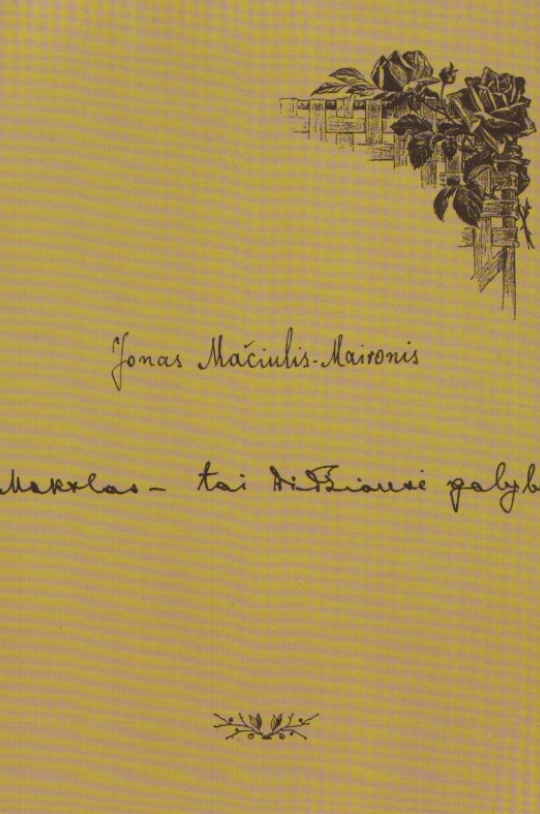 Jonas Mačiulis-Maironis
Mokslas – tai didžiausė galyb